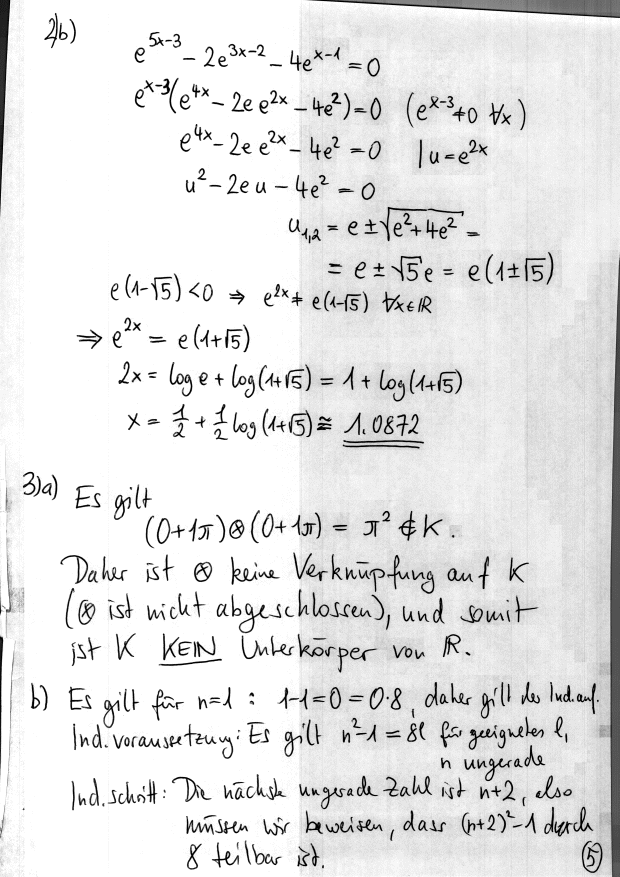 2)b)
e^{5x-3} - 2e^{3x-2} - 4e^{x-1} = 0
e^{x-3}(e^{4x} - 2e e^{2x} - 4e^2) = 0 (e^{x-3} ≠ 0 ∀x)
e^{4x} - 2e e^{2x} - 4e^2 = 0 | u = e^{2x}
u^2 - 2e u - 4e^2 = 0
u_{1,2} = e ± √(e^2 + 4e^2) =
= e ± √5 e = e(1 ± √5)
e(1-√5) < 0 ⇒ e^{2x} ≠ e(1-√5) ∀x∈ℝ
⇒ e^{2x} = e(1+√5)
2x = log e + log(1+√5) = 1 + log(1+√5)
x = 1/2 + 1/2 log(1+√5) ≅ 1.0872
3)a) Es gilt
(0+1π)⊗(0+1π) = π^2 ∉ K.
Daher ist ⊗ keine Verknüpfung auf K
(⊗ ist nicht abgeschlossen), und somit
ist K KEIN Unterkörper von ℝ.
b) Es gilt für n=1 : 1-1=0=0·8, daher gilt der Ind.anf.
Ind.voraussetzung: Es gilt n^2-1 = 8l für geeignetes l,
n ungerade
Ind.schritt: Die nächste ungerade Zahl ist n+2, also
müssen wir beweisen, dass (n+2)^2-1 durch
8 teilbar ist.
5